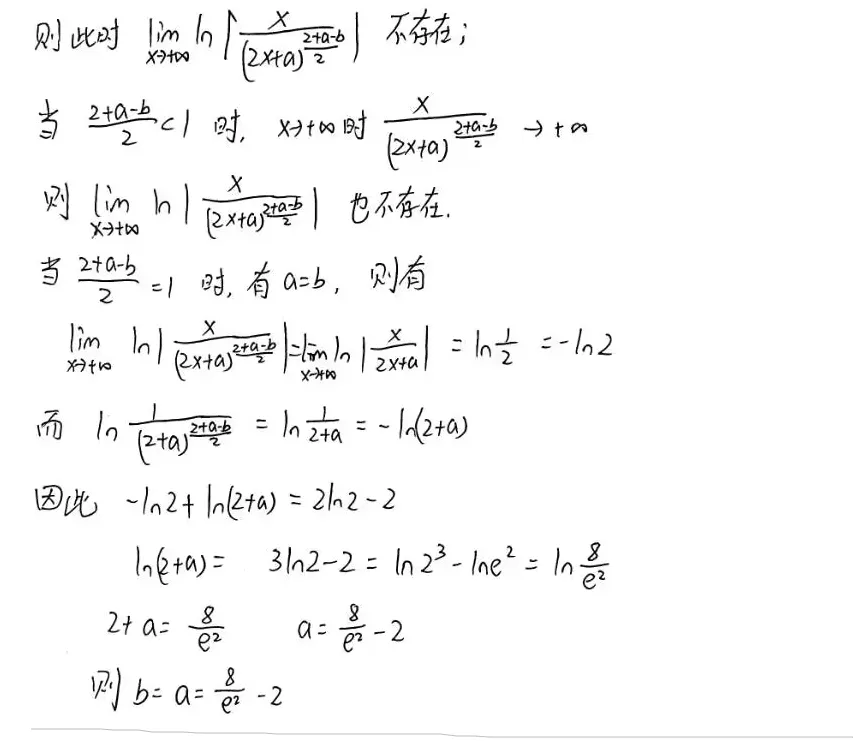 则此时 lim x→+∞ ln|x/(2x+a)^((2+a-b)/2)| 不存在;
当 (2+a-b)/2<1 时, x→+∞时 x/(2x+a)^((2+a-b)/2) →+∞
则 lim x→+∞ ln|x/(2x+a)^((2+a-b)/2)| 也不存在.
当 (2+a-b)/2=1 时, 有 a=b, 则有
lim x→+∞ ln|x/(2x+a)^((2+a-b)/2)|=lim x→+∞ ln|x/(2x+a)| = ln 1/2 = -ln2
而 ln 1/(2+a)^((2+a-b)/2) = ln 1/(2+a) = -ln(2+a)
因此 -ln2+ln(2+a)=2ln2-2
ln(2+a)= 3ln2-2 = ln2^3-lne^2 = ln 8/e^2
2+a= 8/e^2 a= 8/e^2 -2
则 b=a= 8/e^2 -2